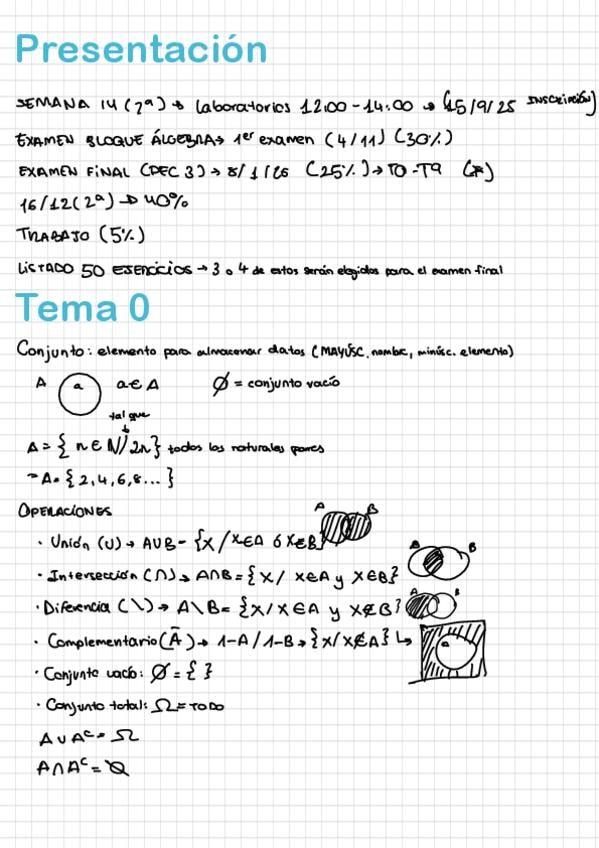 Presentación
SEMANA 14 (2ª) → laboratorios 12:00-14:00 → (15/9/25 INSCRIPCIÓN)
EXAMEN BLOQUE ÁLGEBRA → 1er examen (4/11) (30%)
EXAMEN FINAL (DEC 3) → 8/1/26 (25%) → T0-T9
16/12 (2ª) → 40%
TRABAJO (5%)
LISTADO 50 EJERCICIOS → 3 o 4 de estos serán elegidos para el examen final
Tema 0
Conjunto: elemento para almacenar datos (MAYÚSC. nombre, minúsc. elemento)
A a a∈A ∅ = conjunto vacío
tal que
A = { n∈N/2n} todos los naturales pares
A = {2,4,6,8...}
OPERACIONES
A B
· Unión (∪) → A∪B = {X/X∈A ó X∈B}
A B
· Intersección (∩) → A∩B = {X/ X∈A y X∈B}
A B
· Diferencia (\) → A\B = {X/X∈A y X∉B}
· Complementario (Ā) → 1-A / 1-B → {X/X∉A} ↳ a
· Conjunto vacío: ∅ = { }
· Conjunto total: Ω = TODO
A∪Aᶜ = Ω
A∩Aᶜ = ∅